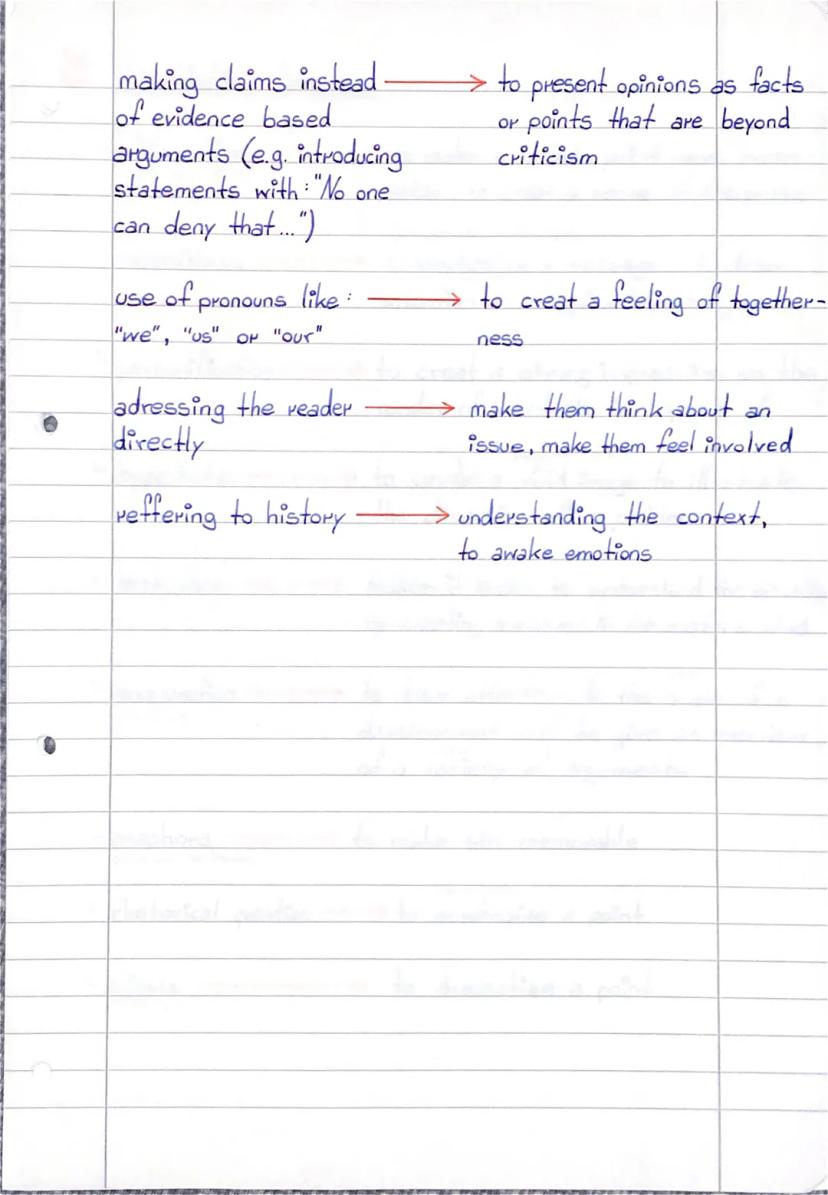 making claims instead → to present opinions as facts
of evidence based or points that are beyond
arguments (e.g. introducing criticism
statements with: "No one
can deny that...")
use of pronouns like: → to creat a feeling of together-
"we", "us" or "our" ness
adressing the reader → make them think about an
directly issue, make them feel involved
reffering to history → understanding the context,
to awake emotions